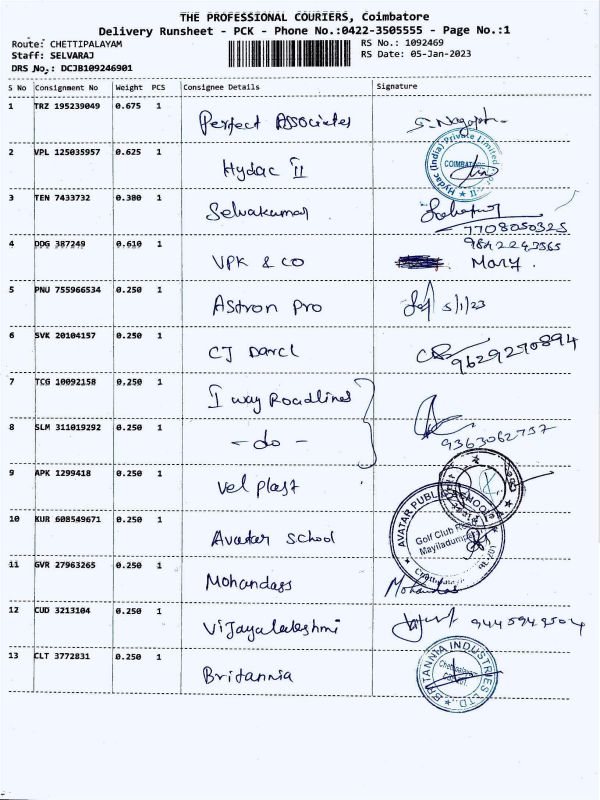 THE PROFESSIONAL COURIERS, Coimbatore
Delivery Runsheet - PCK - Phone No.:0422-3505555 - Page No.:1
Route: CHETTIPALAYAM
RS No.: 1092469
Staff: SELVARAJ
RS Date: 05-Jan-2023
DRS No.: DCJB109246901
S No Consignment No Weight PCS Consignee Details Signature
1 TRZ 195239049 0.675 1 Perfect Associates
2 VPL 125035957 0.625 1 Hydac II
Hydac (India) Private Limited
COIMBATORE
3 TEN 7433732 0.380 1 Selvakumar
7708050325
4 DDG 387249 0.610 1 VPK & CO Mary.
9842243565
5 PNU 755966534 0.250 1 Astron Pro 5/1/23
6 SVK 20104157 0.250 1 CJ Darcl
9629270894
7 TCG 10092158 0.250 1 I way Roadlines
8 SLM 311019292 0.250 1 - do -
9363062757
9 APK 1299418 0.250 1 Vel plast
10 KUR 608549671 0.250 1 Avatar School
AVATAR PUBLIC SCHOOL
Golf Club Road
Mayiladumparai
11 GVR 27963265 0.250 1 Mohandass Mohandas
12 CUD 3213104 0.250 1 Vijayalakshmi 9445949504
13 CLT 3772831 0.250 1 Britannia
BRITANNIA INDUSTRIES LTD.